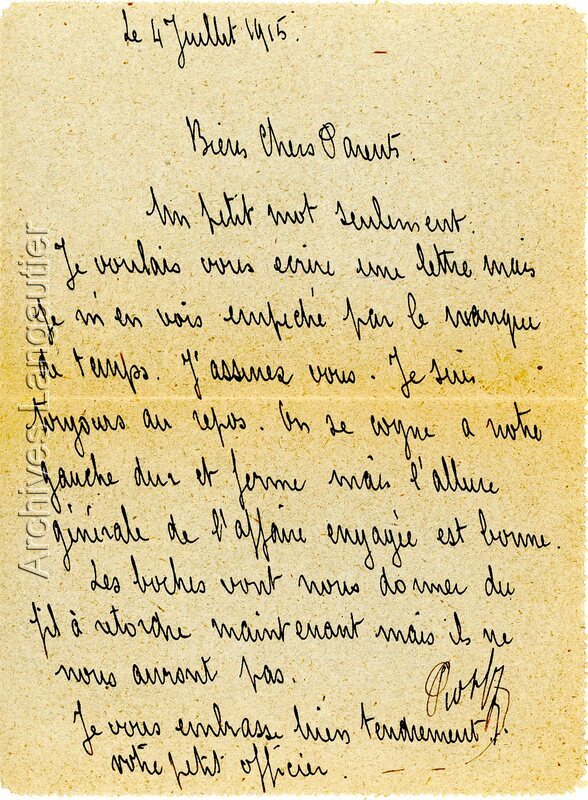 Le 4 Juillet 1915.
Bières Chers Parents.
Un petit mot seulement.
Je voulais vous écrire une lettre mais
je m'en vois empêché par le manque
de temps. J'assurez vous. Je suis
toujours au repos. On se cogne a notre
gauche dur et ferme mais l'allure
générale de l'affaire engagée est bonne.
Les boches vont nous donner du
fil à retordre maintenant mais ils ne
nous auront pas.
Je vous embrasse bien tendrement.
votre petit officier.
Archives Langautier